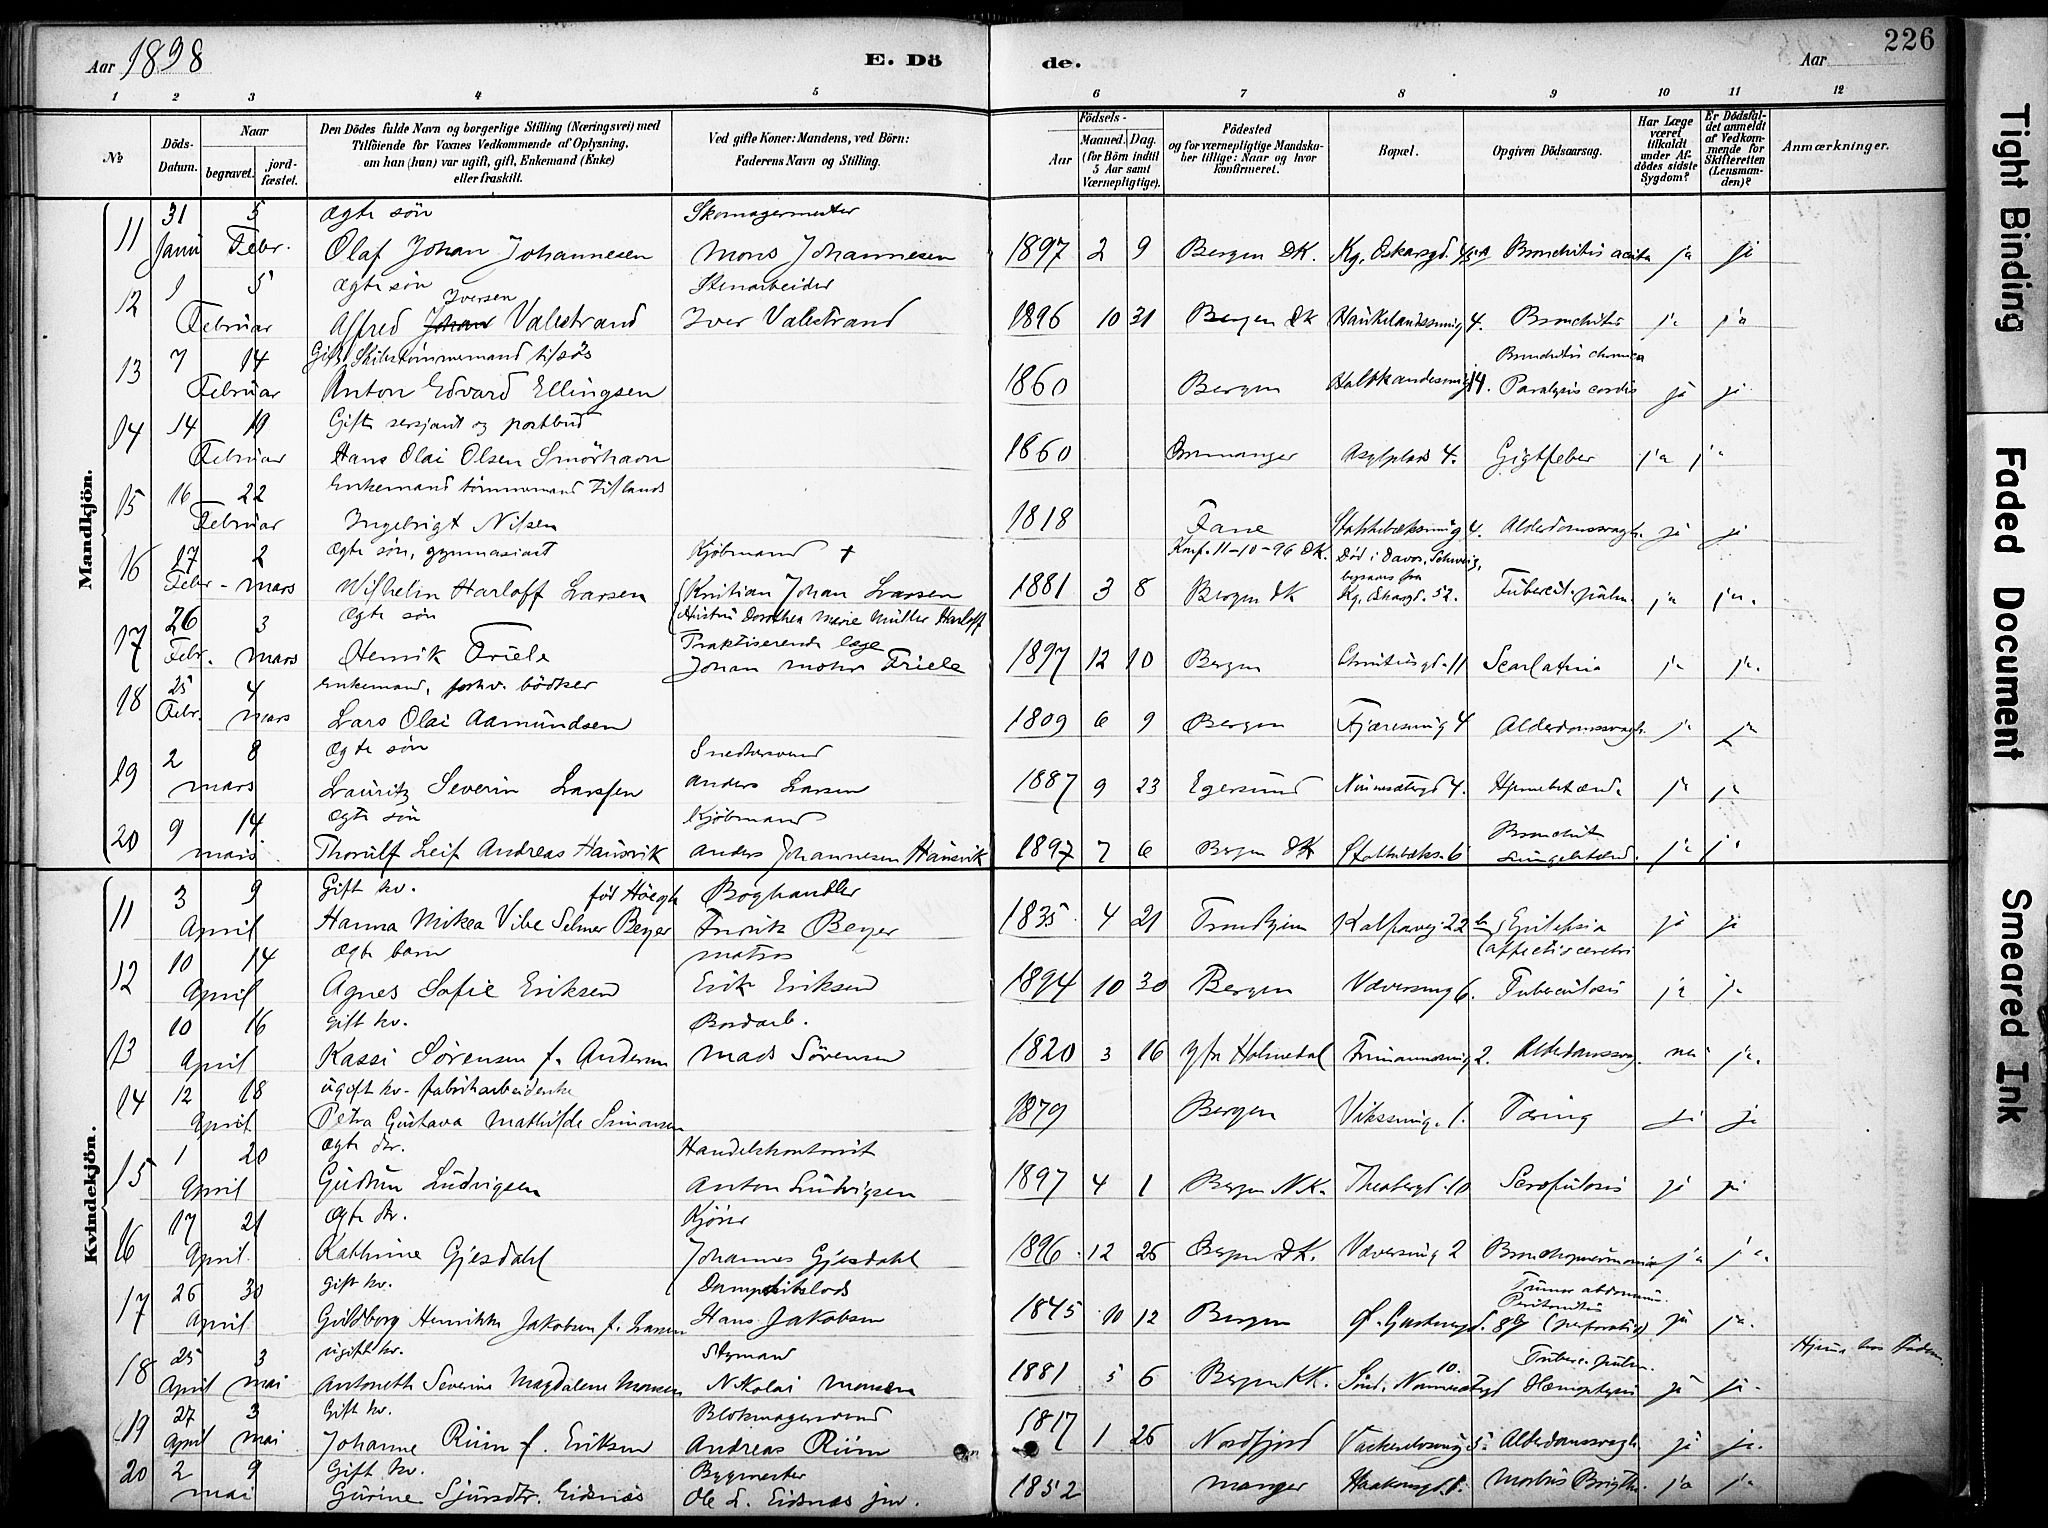 Aar 1898
E. Dö
de.
Aar
226
1 2 3 4 5 6 7 8 9 10 11 12
№
Döds-Datum.
Naar
begravet.
jord-fæstet.
Den Dödes fulde Navn og borgerlige Stilling (Næringsvei) med
Tilföiende for Voxnes Vedkommende af Oplysning,
om han (hun) var ugift, gift, Enkemand (Enke)
eller fraskilt.
Ved gifte Koner: Mandens, ved Börn:
Faderens Navn og Stilling.
Födsels-
Aar
Maaned.
Dag.
(for Börn indtil
5 Aar samt
Værnepligtige).
Födested
og for værnepligtige Mandska-
ber tillige: Naar og hvor
konfirmeret.
Bopæl.
Opgiven Dödsaarsag.
Har Læge
været
tilkaldt
under Af-
dödes sidste
Sygdom?
Er Dödsfal-
det anmeldt
af Vedkom-
mende for
Skifteretten
(Lensman-
den)?
Anmærkninger.
Mandkjön.
31 5 Ægte søn Skomagermester
11 Janu Febr. Olaf Johan Johannesen Mons Johannesen 1897 2 9 Bergen DK. Kg. Oskarsgd. Bronchitis acuta ja ja
1 5 Ægte søn Stenarbeider
Iversen
12 Februar Alfred Johan Valestrand Iver Valestrand 1896 10 31 Bergen DK Haukelandssmug 4. Bronchitis ja ja
7 14 Gift, Skibstømmermand tilsøs Bronchitis chronica
13 Februar Anton Edvard Ellingsen 1860 Bergen 14. Paralysis cordis ja ja
14 19 Gift sersjant og postbud
14 Februar Hans Olai Olsen Smörhavn 1860 Bremanger Asylplads 4. Gigtfeber ja ja
16 22 Enkemand tømmermand tillands
15 Februar Ingebrigt Nilsen 1818 Fane Stakkebæksmug 4. Alderdomssvagh. ja ja
17 2 Ægte søn, gymnasiast Kjøbmand + Konf. 11-10-96 DK. Död i Davos, Schweiz,
begraves fra
16 Febr- mars Wilhelm Harloff Larsen Kristian Johan Larsen 1881 3 8 Bergen DK Kg. Oskarsgd. 52. Tubercul. pulm. ja ja.
26 3 Ægte søn Hustru Dorothea Marie Müller Harloff
Praktiserende læge
17 Febr. mars Henrik Friele Johan Mohr Friele 1897 12 10 Bergen Christiesgd. 11 Scarlatina ja ja.
25 4 Enkemand, forhv. bödker
18 Febr. mars Lars Olai Aamundsen 1809 6 9 Bergen Fjæresmug 4 Alderdomssvagh. ja ja
2 8 Ægte søn Snedkersvend
19 mars Lauritz Severin Larssen Anders Larsen 1887 9 23 Egersund 4. Hjernebetænd. ja ja
9 14 Ægte søn Kjøbmand Bronchit
20 mars Thorulf Leif Andreas Hausvik Anders Johannesen Hausvik 1897 7 6 Bergen DK Stakkebæks. 6 Lungebetænd. ja ja
Kvindekjön.
3 9 Gift kv. född Höegh Boghandler
11 April Hanna Mikea Vibe Selmer Beyer Fredrik Beyer 1835. 4 21 Trondhjem Kalfarvej 22 b Epilepsia ja ja
(affectio cerebri
10 14 Ægte barn matros
12 April Agnes Sofie Eriksen Erik Eriksen 1894 10 30 Bergen Væversmug 6. Tuberculosis ja ja
10 16 Gift kv. Bordarb.
13 April Kassi Sørensen f. Andersen Mads Sörensen 1820 3 16 Holmedal 2. Alderdomssvag. nei ja.
12 18 ugift kv. fabrikarbeiderske
14 April Petra Gustava Mathilde Simonsen 1879 Bergen Vikssmug. 1. Tæring ja ja
1 20 Ægte dtr. Handelskontorist
15 April Gudrun Ludvigsen Anton Ludvigsen 1897 4 1 Bergen N.K. Theatergd. 10 Scrofulosis ja ja
17 21 Ægte dtr. Kjører
16 April Kathrine Gjesdahl Johannes Gjesdahl 1896. 12 26 Bergen DK. Væversmug 2 Bronchopneumonia ja ja.
26 30 Gift kv. Dampskibslods Tumor abdominis.
Peritonitis
17 April Guldborg Henrikke Jakobsen f. Larsen Hans Jakobsen 1845 10 12 Bergen (perforativ) ja ja.
25 3 ugift kv. Styrmand 10. Tuberc. pulm. Hjemme hos Faderen.
18 April mai Antonette Severine Magdalene Monsen Nikolai Monsen 1881 5 6 Bergen KK. Hæmoptysis ja ja.
27 3 Gift kv. Blokmagersvend
19 April mai Johanne Riim f. Eriksen Andreas Riim 1817 1 26 Nordfjord Alderdomssvagh. ja ja.
2 9 Gift kv. Bygmester
20 mai Gurine Sjursdtr. Eidsnæs Ole L. Eidsnæs jun. 1852 Manger Haakonsgd. Morbus Brigthi. ja ja
Tight Binding
Faded Document
Smeared Ink